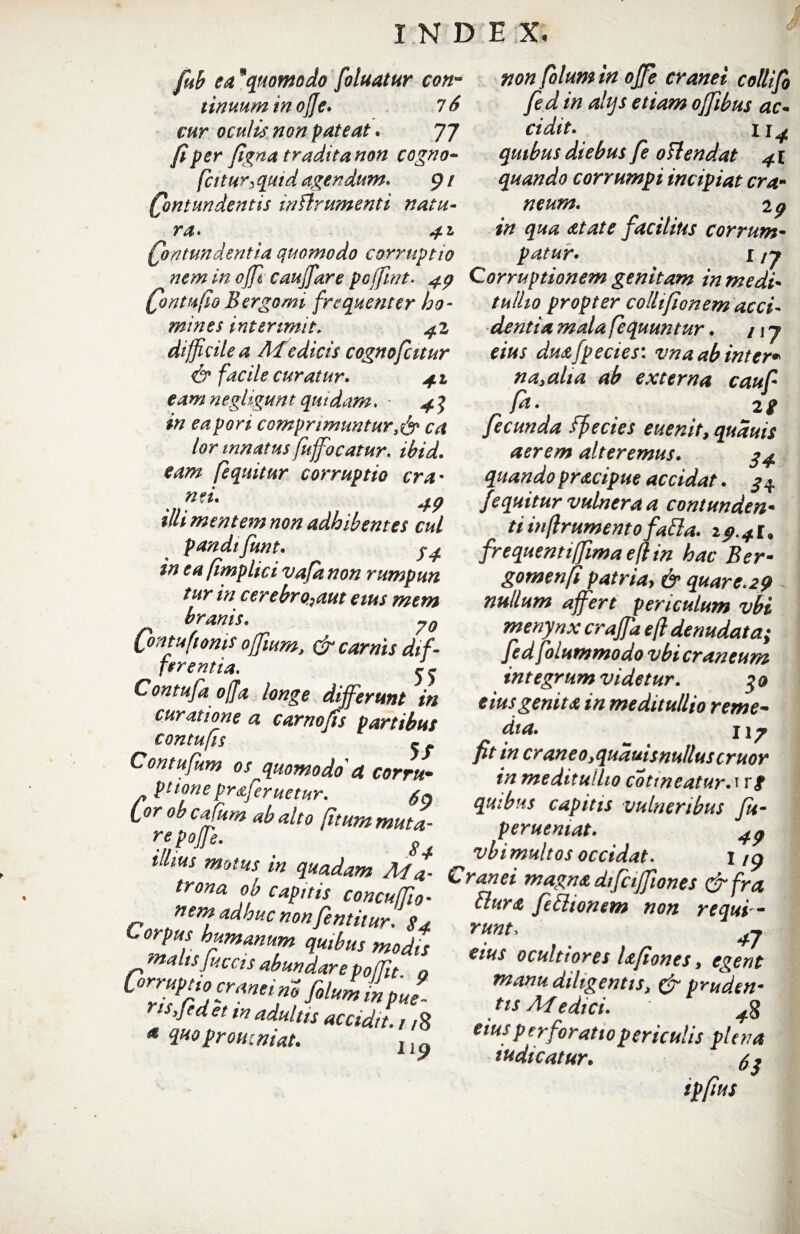 INDEX.
sub ea quomodo soluatur con-
tinuum in osse. 76
cur oculis non pateat. 77
si per signa tradita non cogno-
scitur, quid agendum. 91
Contundentis instrumenti natu-
ra. 42
Contundentia quomodo corruptio
nem in osse caussare possint. 49
Contusio Bergomi frequenter ho-
mines interimit. 42
difficile a Medicis cognoscitur
& facile curatur. 42
eam negligunt quidam. 43
in ea pori comprimuntur, & ca
lor innatus suffocatur. ibid.
eam sequitur corruptio cra-
nei. 49
illi mentem non adhibentes cul
pandi sunt. 54
in ea simplici vasa non rumpun
tur in cerebro, aut eius mem
branis. 70
Contusionis ossium, & carnis dif-
ferentia. 55
Contusa ossa longe differunt in
curatione a carnosis partibus
contusis 55
Contusum os quomodo a corru-
ptione præseruetur. 69
Cor ob casum ab alto situm muta-
re posse. 84
illius motus in quadam Ma-
trona ob capitis concussio-
nem adhuc non sentitur. 84
Corpus humanum quibus modis
malis succis abundare possit. 9
Corruptio cranei nō solum in pue-
ris, sed et in adultis accidit. 118
a quo proueniat. 119
non solum in osse cranei colliso
sed in alijs etiam ossibus ac-
cidit. 114
quibus diebus se ostendat 41
quando corrumpi incipiat cra-
neum. 29
in qua ætate facilius corrum-
patur. 117
Corruptionem genitam in medi-
tullio propter collisionem acci-
dentia mala sequuntur. 117
eius duæ species: vna ab inter-
na, alia ab externa caus-
sa. 28
secunda species euenit, quāuis
aerem alteremus. 34
quando præcipue accidat. 34
sequitur vulnera a contunden-
ti instrumento facta. 29.41.
frequentissima est in hac Ber-
gomensi patria, & quare. 29
nullum affert periculum vbi
menynx crassa est denudata;
sed solummodo vbi craneum
integrum videtur. 30
eius genitæ in meditullio reme-
dia. 117
fit in craneo, quāuis nullus cruor
in meditullio cōtineatur. 118
quibus capitis vulneribus su-
perueniat. 49
vbi multos occidat. 119
Cranei magnæ discissiones & fra
cturæ sectionem non requi-
runt. 47
eius ocultiores læsiones, egent
manu diligentis, & pruden-
tis Medici. 48
eius perforatio periculis plena
iudicatur. 63
ipsius